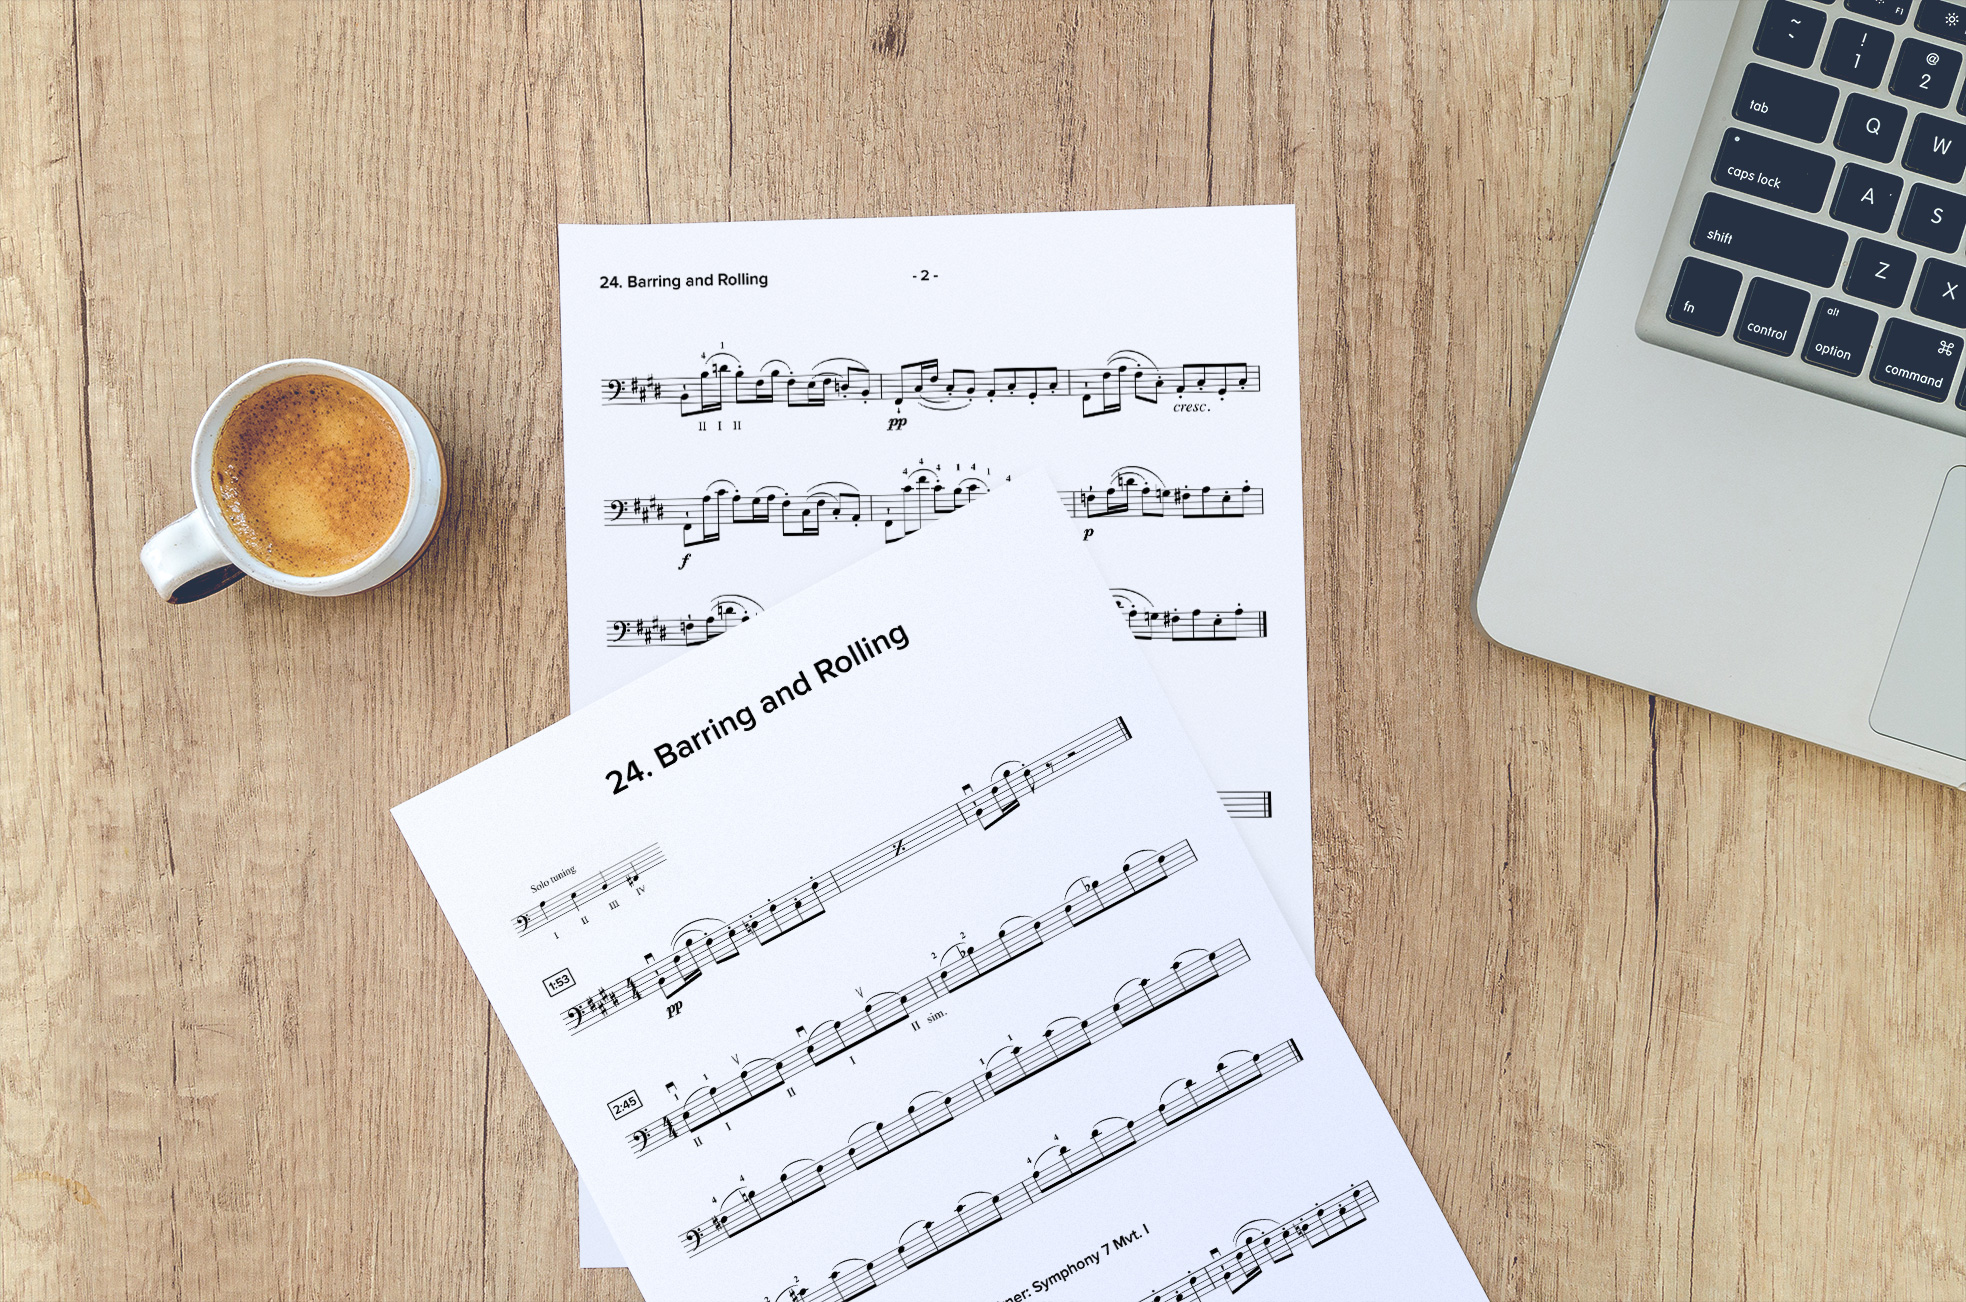 24. Barring and Rolling
- 2 -
4 1
II I II
pp
cresc.
4 4 4 1 4 1 4
f
p
24. Barring and Rolling
Solo tuning
I II III IV
1:53
pp
2:45
1
II I II I II sim.
2 2
4 4
1 1
4 4
2 2
Symphony 7 Mvt. I
~
`
! 1
@ 2
F1
tab
Q
W
caps lock
A
S
shift
Z
X
fn
control
alt
option
⌘
command